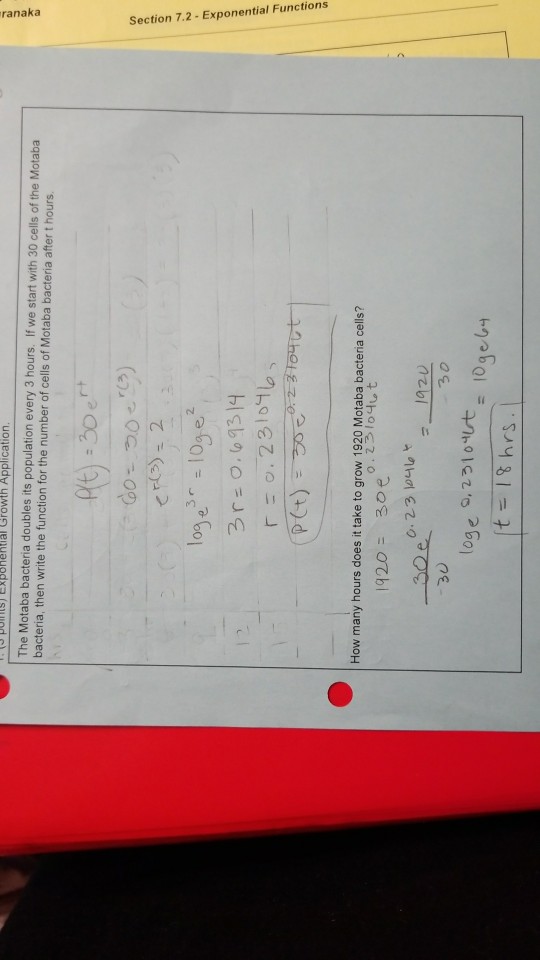 ranaka
Section 7.2 - Exponential Functions
Exponential Growth Application.
The Motaba bacteria doubles its population every 3 hours. If we start with 30 cells of the Motaba
bacteria, then write the function for the number of cells of Motaba bacteria after t hours.
P(t) = 30e^rt
60 = 30e^r(3)
e^r(3) = 2
log e^3r = log e^2
3r = 0.69314
r = 0.231046
P(t) = 30e^0.231046t
How many hours does it take to grow 1920 Motaba bacteria cells?
1920 = 30e^0.231046t
30e^0.231046t = 1920
-30 -30
log e 0.231046t = log e 64
t = 18 hrs.